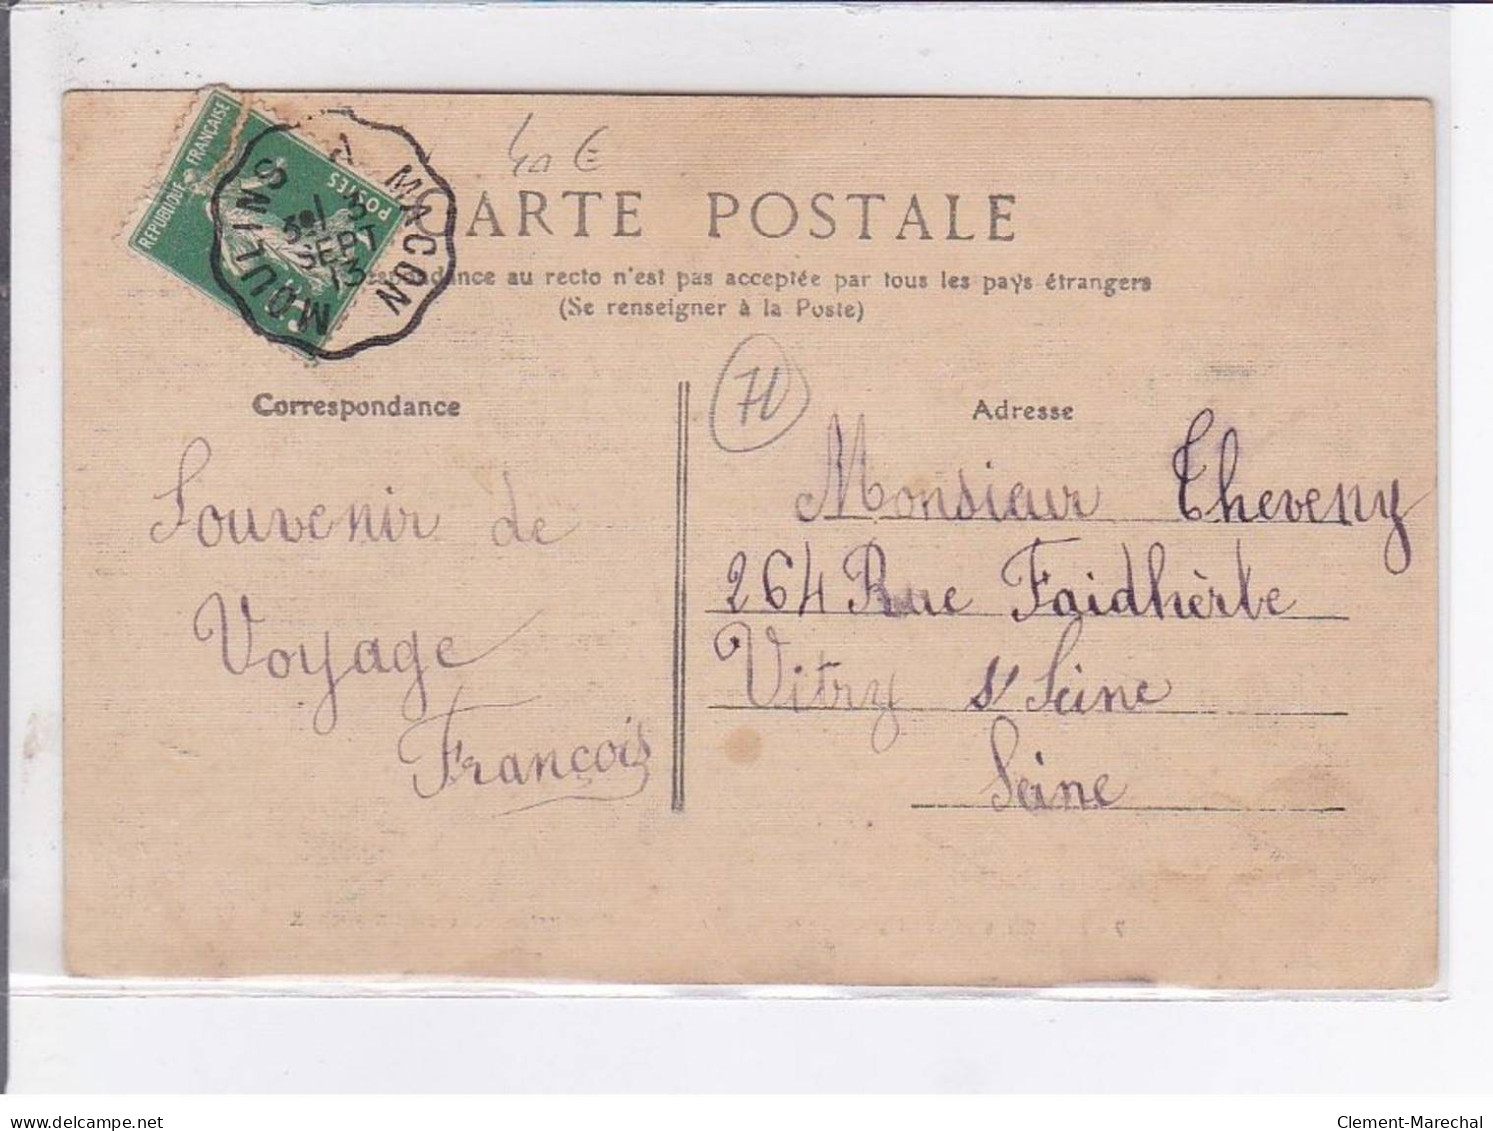 REPUBLIQUE FRANÇAISE
POSTES
MOULINS A MACON
SEPT
13
CARTE POSTALE
au recto n'est pas acceptée par tous les pays étrangers
(Se renseigner à la Poste)
71
Correspondance
Adresse
Souvenir de
Voyage
François
Monsieur Theveny
264 Rue Faidherbe
Vitry s/ Seine
Seine
delcampe.net
Clement-Marechal